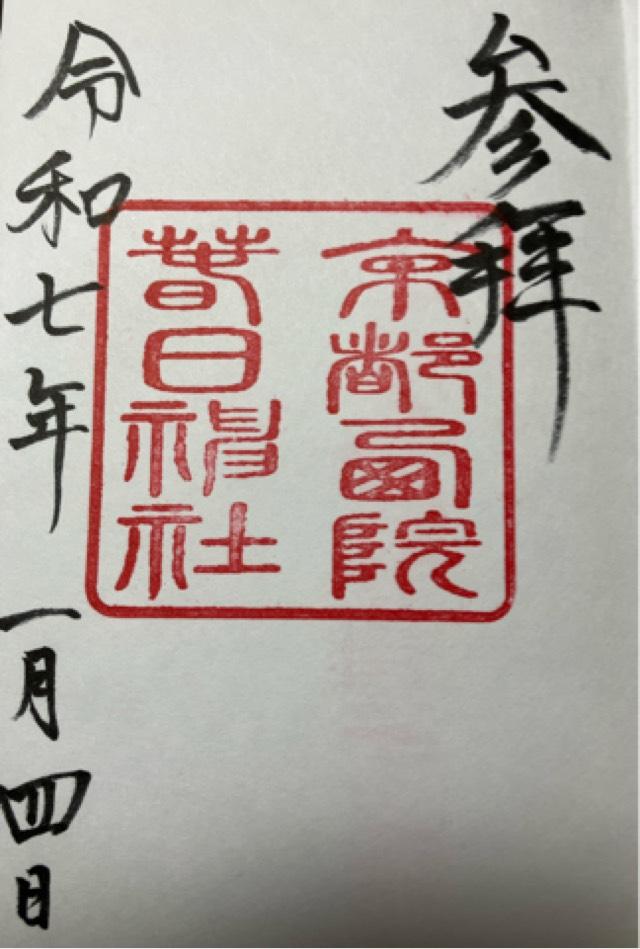 参拝
京都西院
春日神社
令和七年一月四日